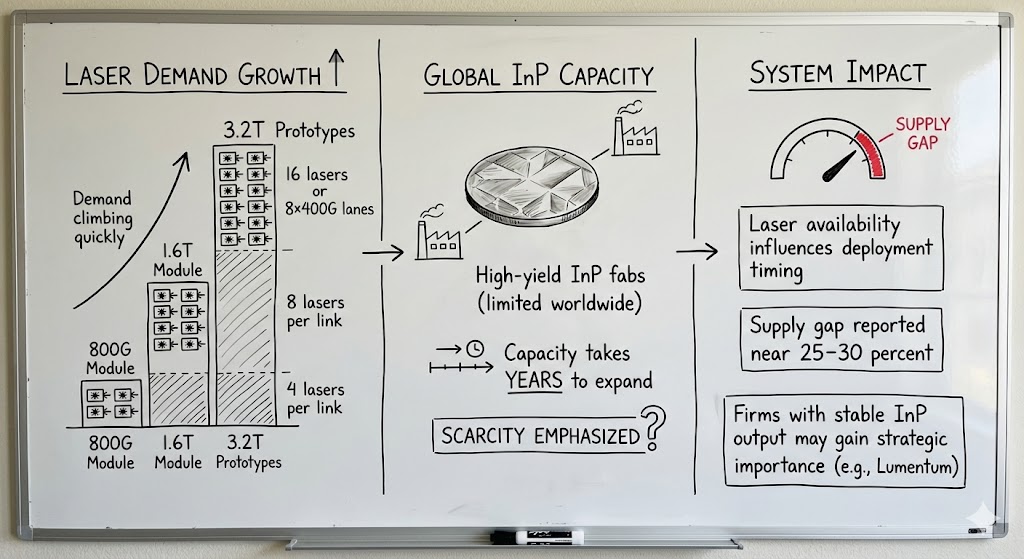 LASER DEMAND GROWTH
Demand
climbing
quickly
3.2T Prototypes
16 lasers
or
8×400G lanes
1.6T
Module
8 lasers
per link
800G
Module
4 lasers
per link
800G
Module
1.6T
Module
3.2T
Prototypes
GLOBAL InP CAPACITY
High-yield InP fabs
(limited worldwide)
Capacity takes
YEARS to expand
SCARCITY EMPHASIZED?
SYSTEM IMPACT
SUPPLY
GAP
Laser availability
influences deployment
timing
Supply gap reported
near 25–30 percent
Firms with stable InP
output may gain strategic
importance (e.g., Lumentum)